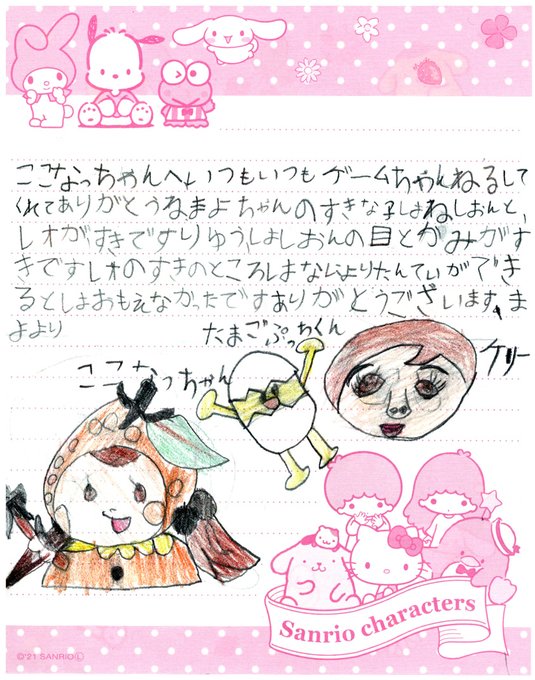 ここなっちゃんへいつもいつもゲームちゃんねるして
くれてありがとうねまよちゃんのすきな子はねしおんと、
レオがすきですりゆうはしおんの目とかみがす
きですレオのすきのところはなによりたんていができ
るとはおもえなかったですありがとうございます、ま
よより
たまごぷっちくん
ケリー
ここなっちゃん
Sanrio characters
©'21 SANRIO Ⓛ